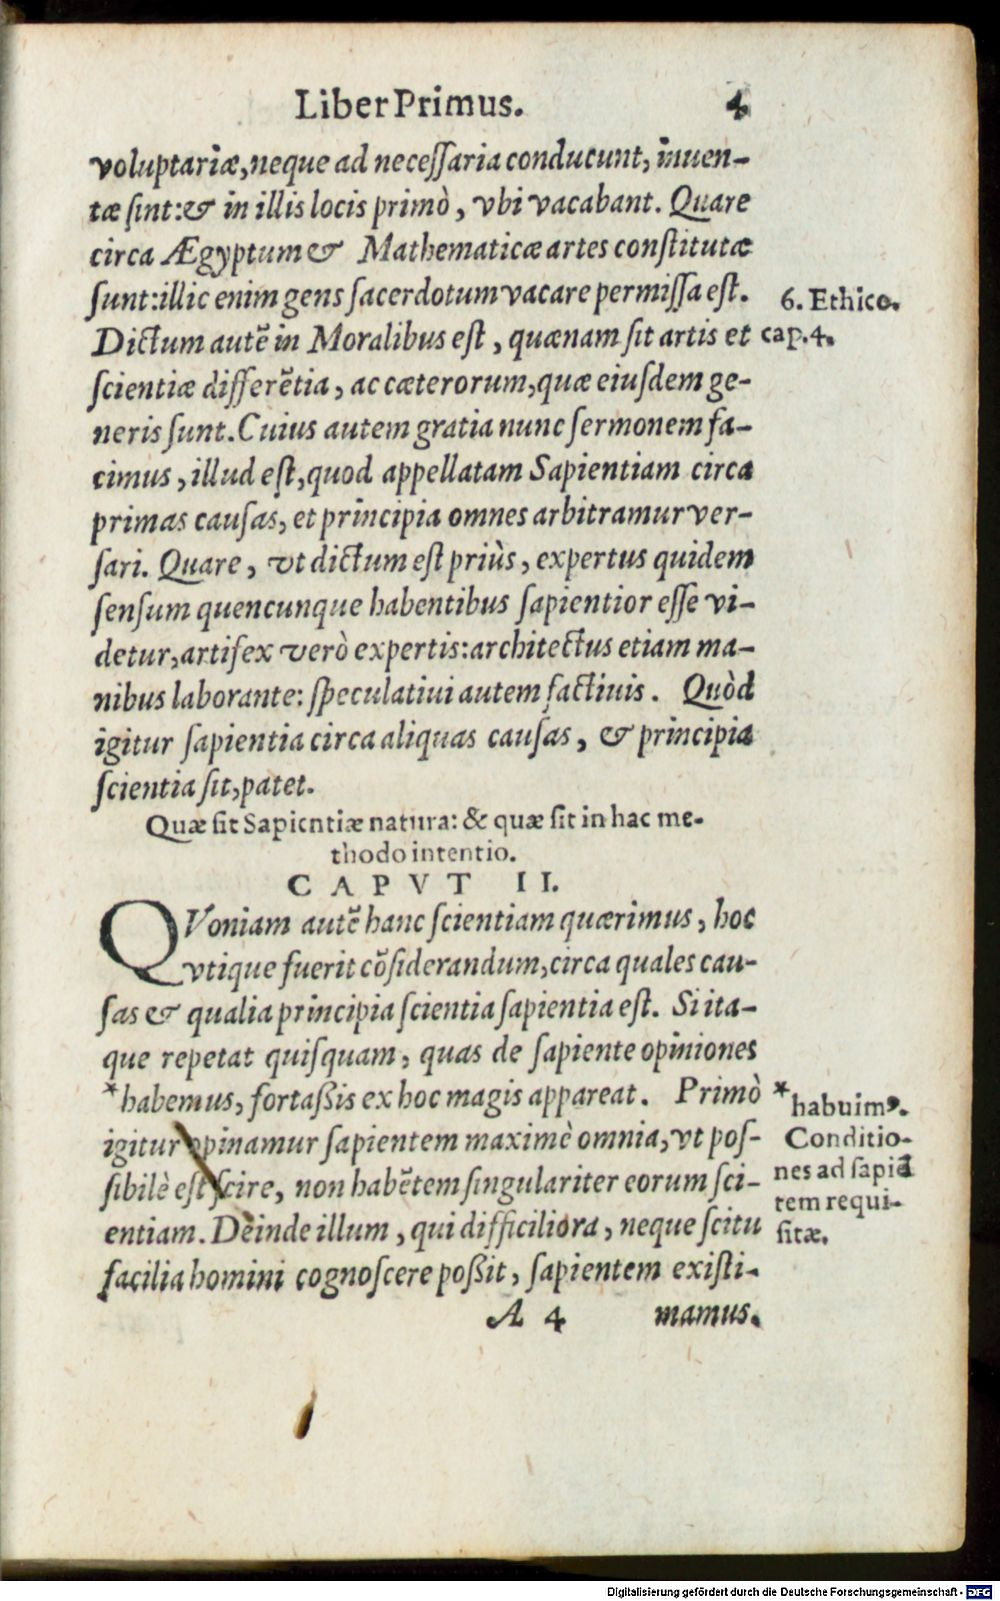 Liber Primus. 4
voluptariæ, neque ad necessaria conducunt, inuen-
tæ sint: & in illis locis primò, vbi vacabant. Quare
circa Ægyptum & Mathematicæ artes constitutæ
sunt: illic enim gens sacerdotum vacare permissa est.
6. Ethico.
Dictum autē in Moralibus est, quænam sit artis et
cap. 4.
scientiæ differētia, ac cæterorum, quæ eiusdem ge-
neris sunt. Cuius autem gratia nunc sermonem fa-
cimus, illud est, quod appellatam Sapientiam circa
primas causas, et principia omnes arbitramur ver-
sari. Quare, vt dictum est priùs, expertus quidem
sensum quencunque habentibus sapientior esse vi-
detur, artifex verò expertis: architectus etiam ma-
nibus laborante: speculatiui autem factiuis. Quòd
igitur sapientia circa aliquas causas, & principia
scientia sit, patet.
Quæ sit Sapientiæ natura: & quæ sit in hac me-
thodo intentio.
CAPVT II.
QVoniam autē hanc scientiam quærimus, hoc
vtique fuerit cōsiderandum, circa quales cau-
sas & qualia principia scientia sapientia est. Si ita-
que repetat quisquam, quas de sapiente opiniones
*habemus, fortaßis ex hoc magis appareat. Primò
*habuimꝰ.
igitur opinamur sapientem maximè omnia, vt pos-
Conditio-
sibilè est scire, non habētem singulariter eorum sci-
nes ad sapiē
tem requi-
entiam. Deinde illum, qui difficiliora, neque scitu
sitæ.
facilia homini cognoscere poßit, sapientem existi-
A 4 mamus.
Digitalisierung gefördert durch die Deutsche Forschungsgemeinschaft - DFG